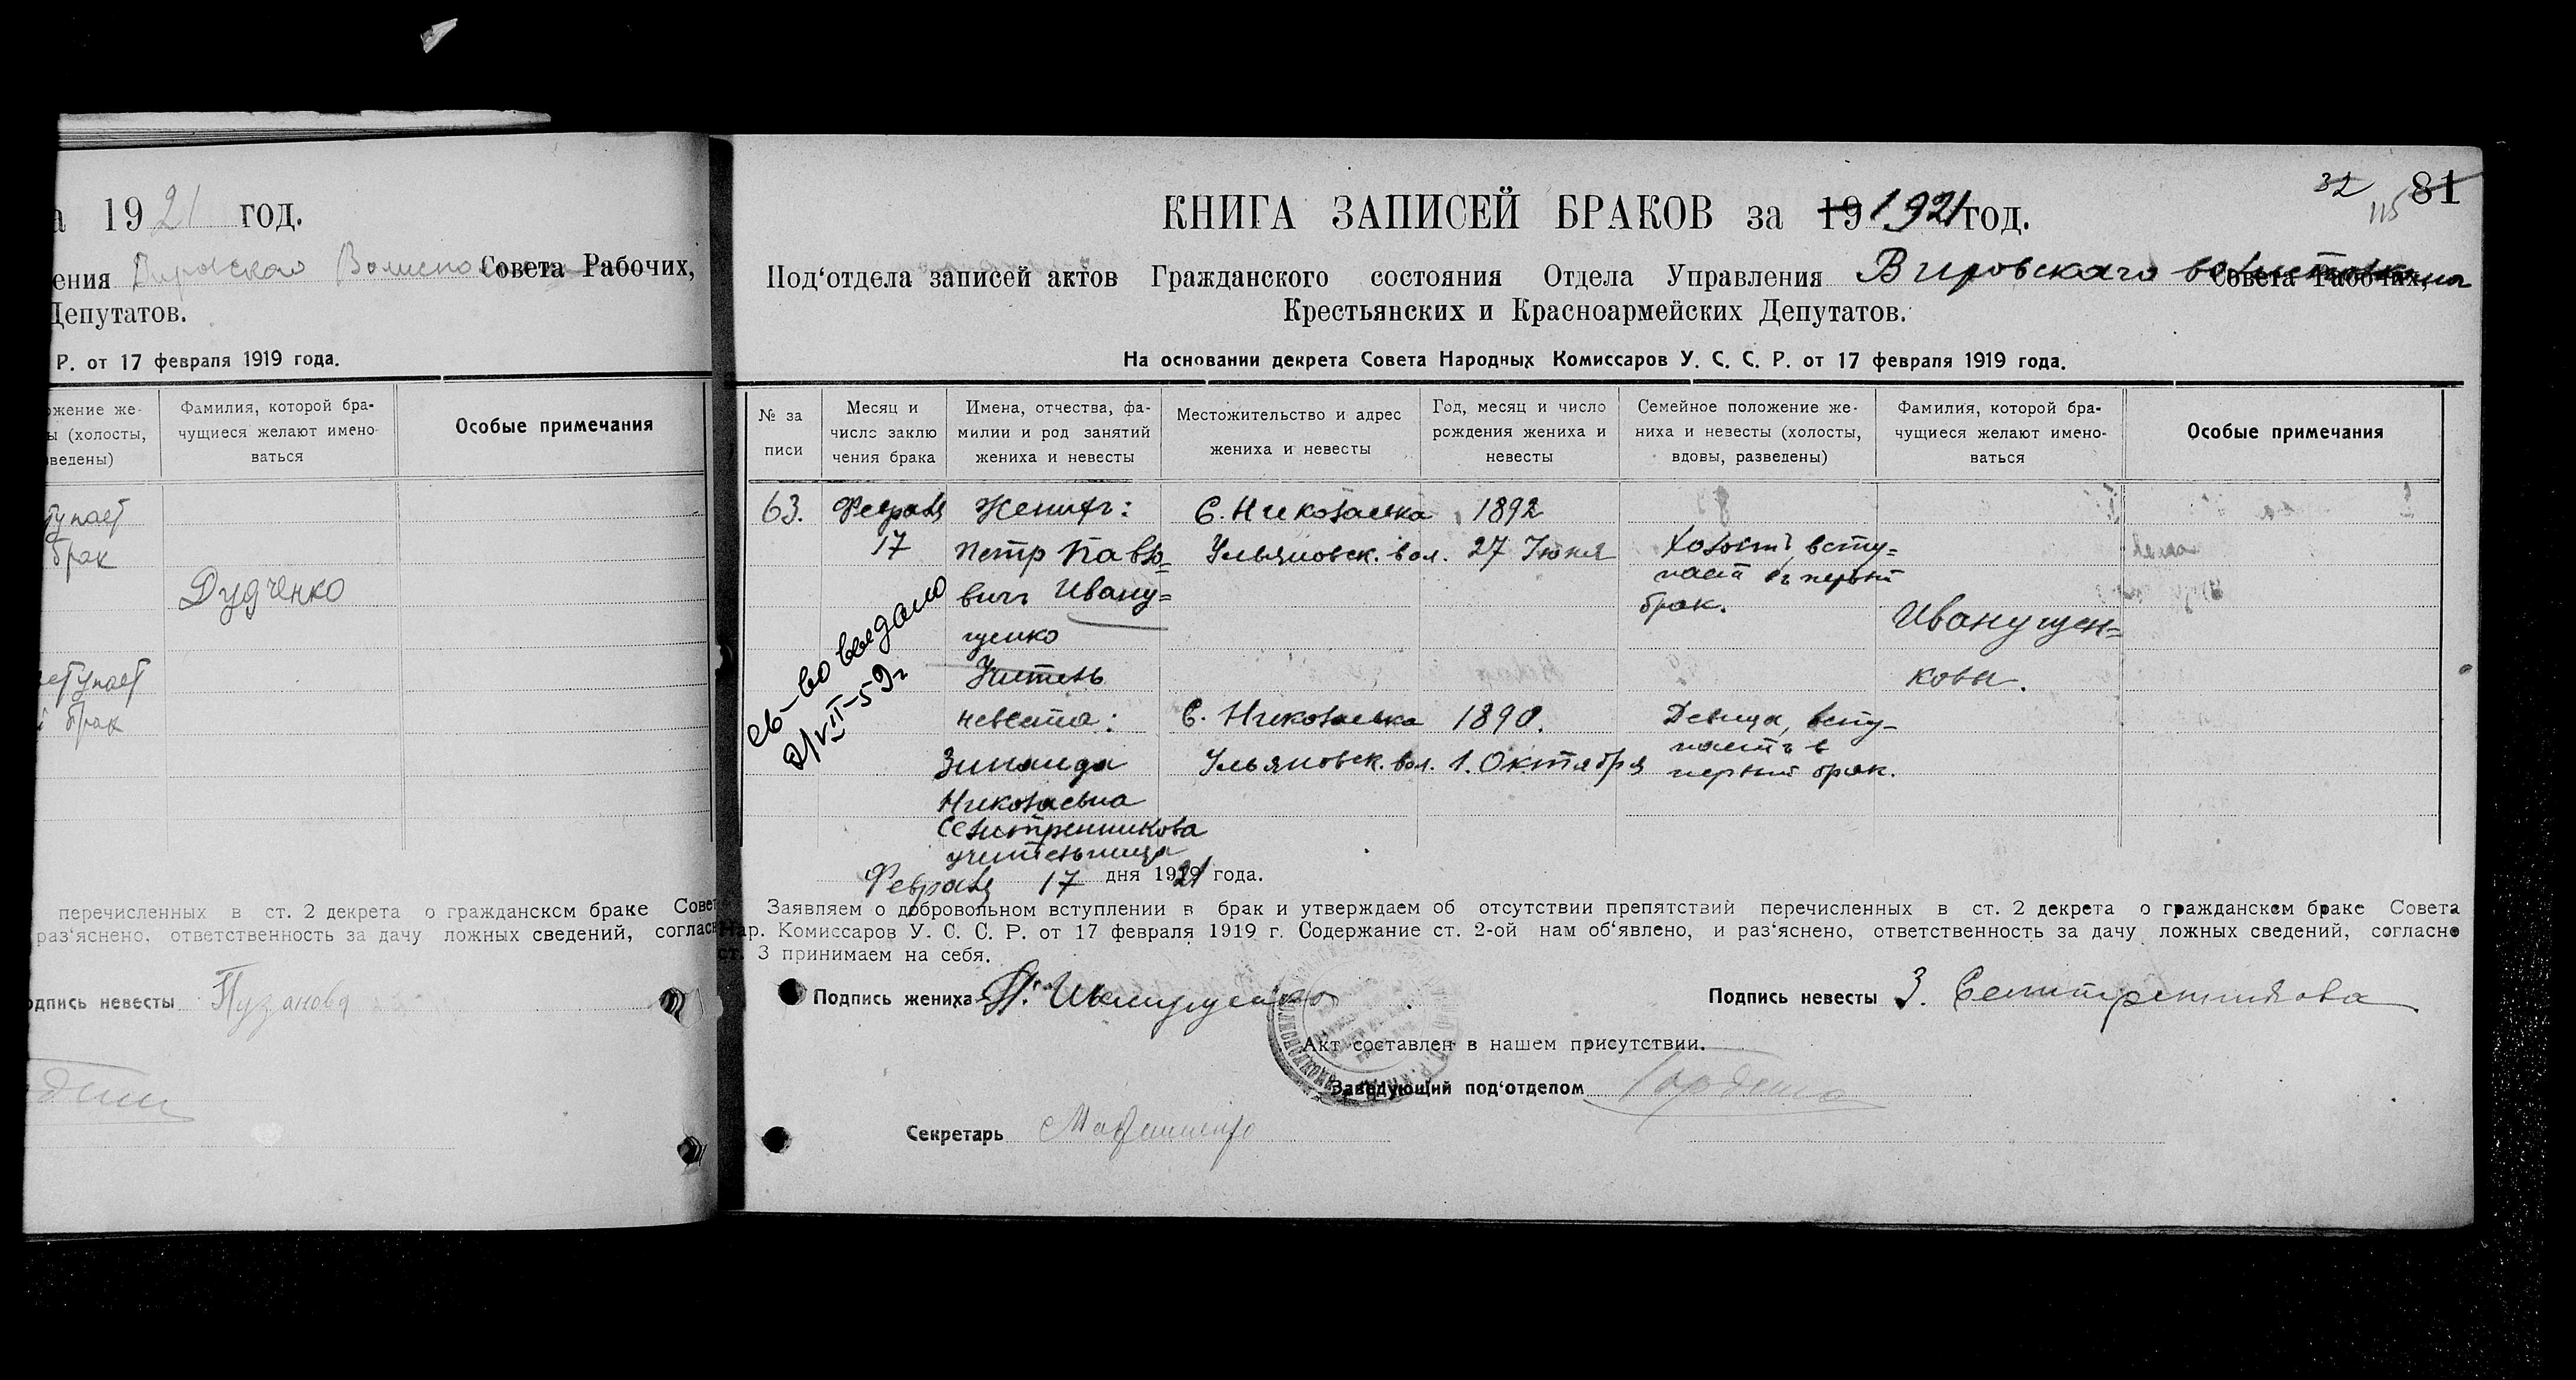 а 1921 год.
ения Вировскаго Совета Рабочих,
Депутатов.
Р. от 17 февраля 1919 года.
ожение же-
ы (холосты,
ведены)
Фамилия, которой бра-
чущиеся желают имено-
ваться
Особые примечания
тупает
брак
Дудченко
ступает
й брак
перечисленных в ст. 2 декрета о гражданском браке Совет
раз'яснено, ответственность за дачу ложных сведений, согласн
одпись невесты Пузанова
32
115
81
КНИГА ЗАПИСЕЙ БРАКОВ за 19 1921 год.
Под'отдела записей актов Гражданского состояния Отдела Управления Вировскаго волисполкома Совета Рабочих,
Крестьянских и Красноармейских Депутатов.
На основании декрета Совета Народных Комиссаров У. С. С. Р. от 17 февраля 1919 года.
№ за
писи
Месяц и
число заклю
чения брака
Имена, отчества, фа-
милии и род занятий
жениха и невесты
Местожительство и адрес
жениха и невесты
Год, месяц и число
рождения жениха и
невесты
Семейное положение же-
ниха и невесты (холосты,
вдовы, разведены)
Фамилия, которой бра-
чущиеся желают имено-
ваться
Особые примечания
63.
Февраля
17
Жених:
Петр Павло-
вич Ивану-
щенко
Учитель
С. Николаевка
Ульяновск. вол.
1892
27 Июня
Холост, всту-
пает в первый
брак.
Иванущен-
ковы.
св-во выдано
2/VII-59г
невеста:
Зинаида
Николаевна
Селитренникова
учительница
С. Николаевка
Ульяновск. вол.
1890.
1. Октября
Девица, всту-
паетъ в
первый брак.
Февраля 17 дня 1921 года.
Заявляем о добровольном вступлении в брак и утверждаем об отсутствии препятствий перечисленных в ст. 2 декрета о гражданском браке Совета
Нар. Комиссаров У. С. С. Р. от 17 февраля 1919 г. Содержание ст. 2-ой нам об'явлено, и раз'яснено, ответственность за дачу ложных сведений, согласно
ст. 3 принимаем на себя.
Подпись жениха П. Иванущенко
Подпись невесты З. Селитренникова
Акт составлен в нашем присутствии.
Заведующий под'отделом
Секретарь